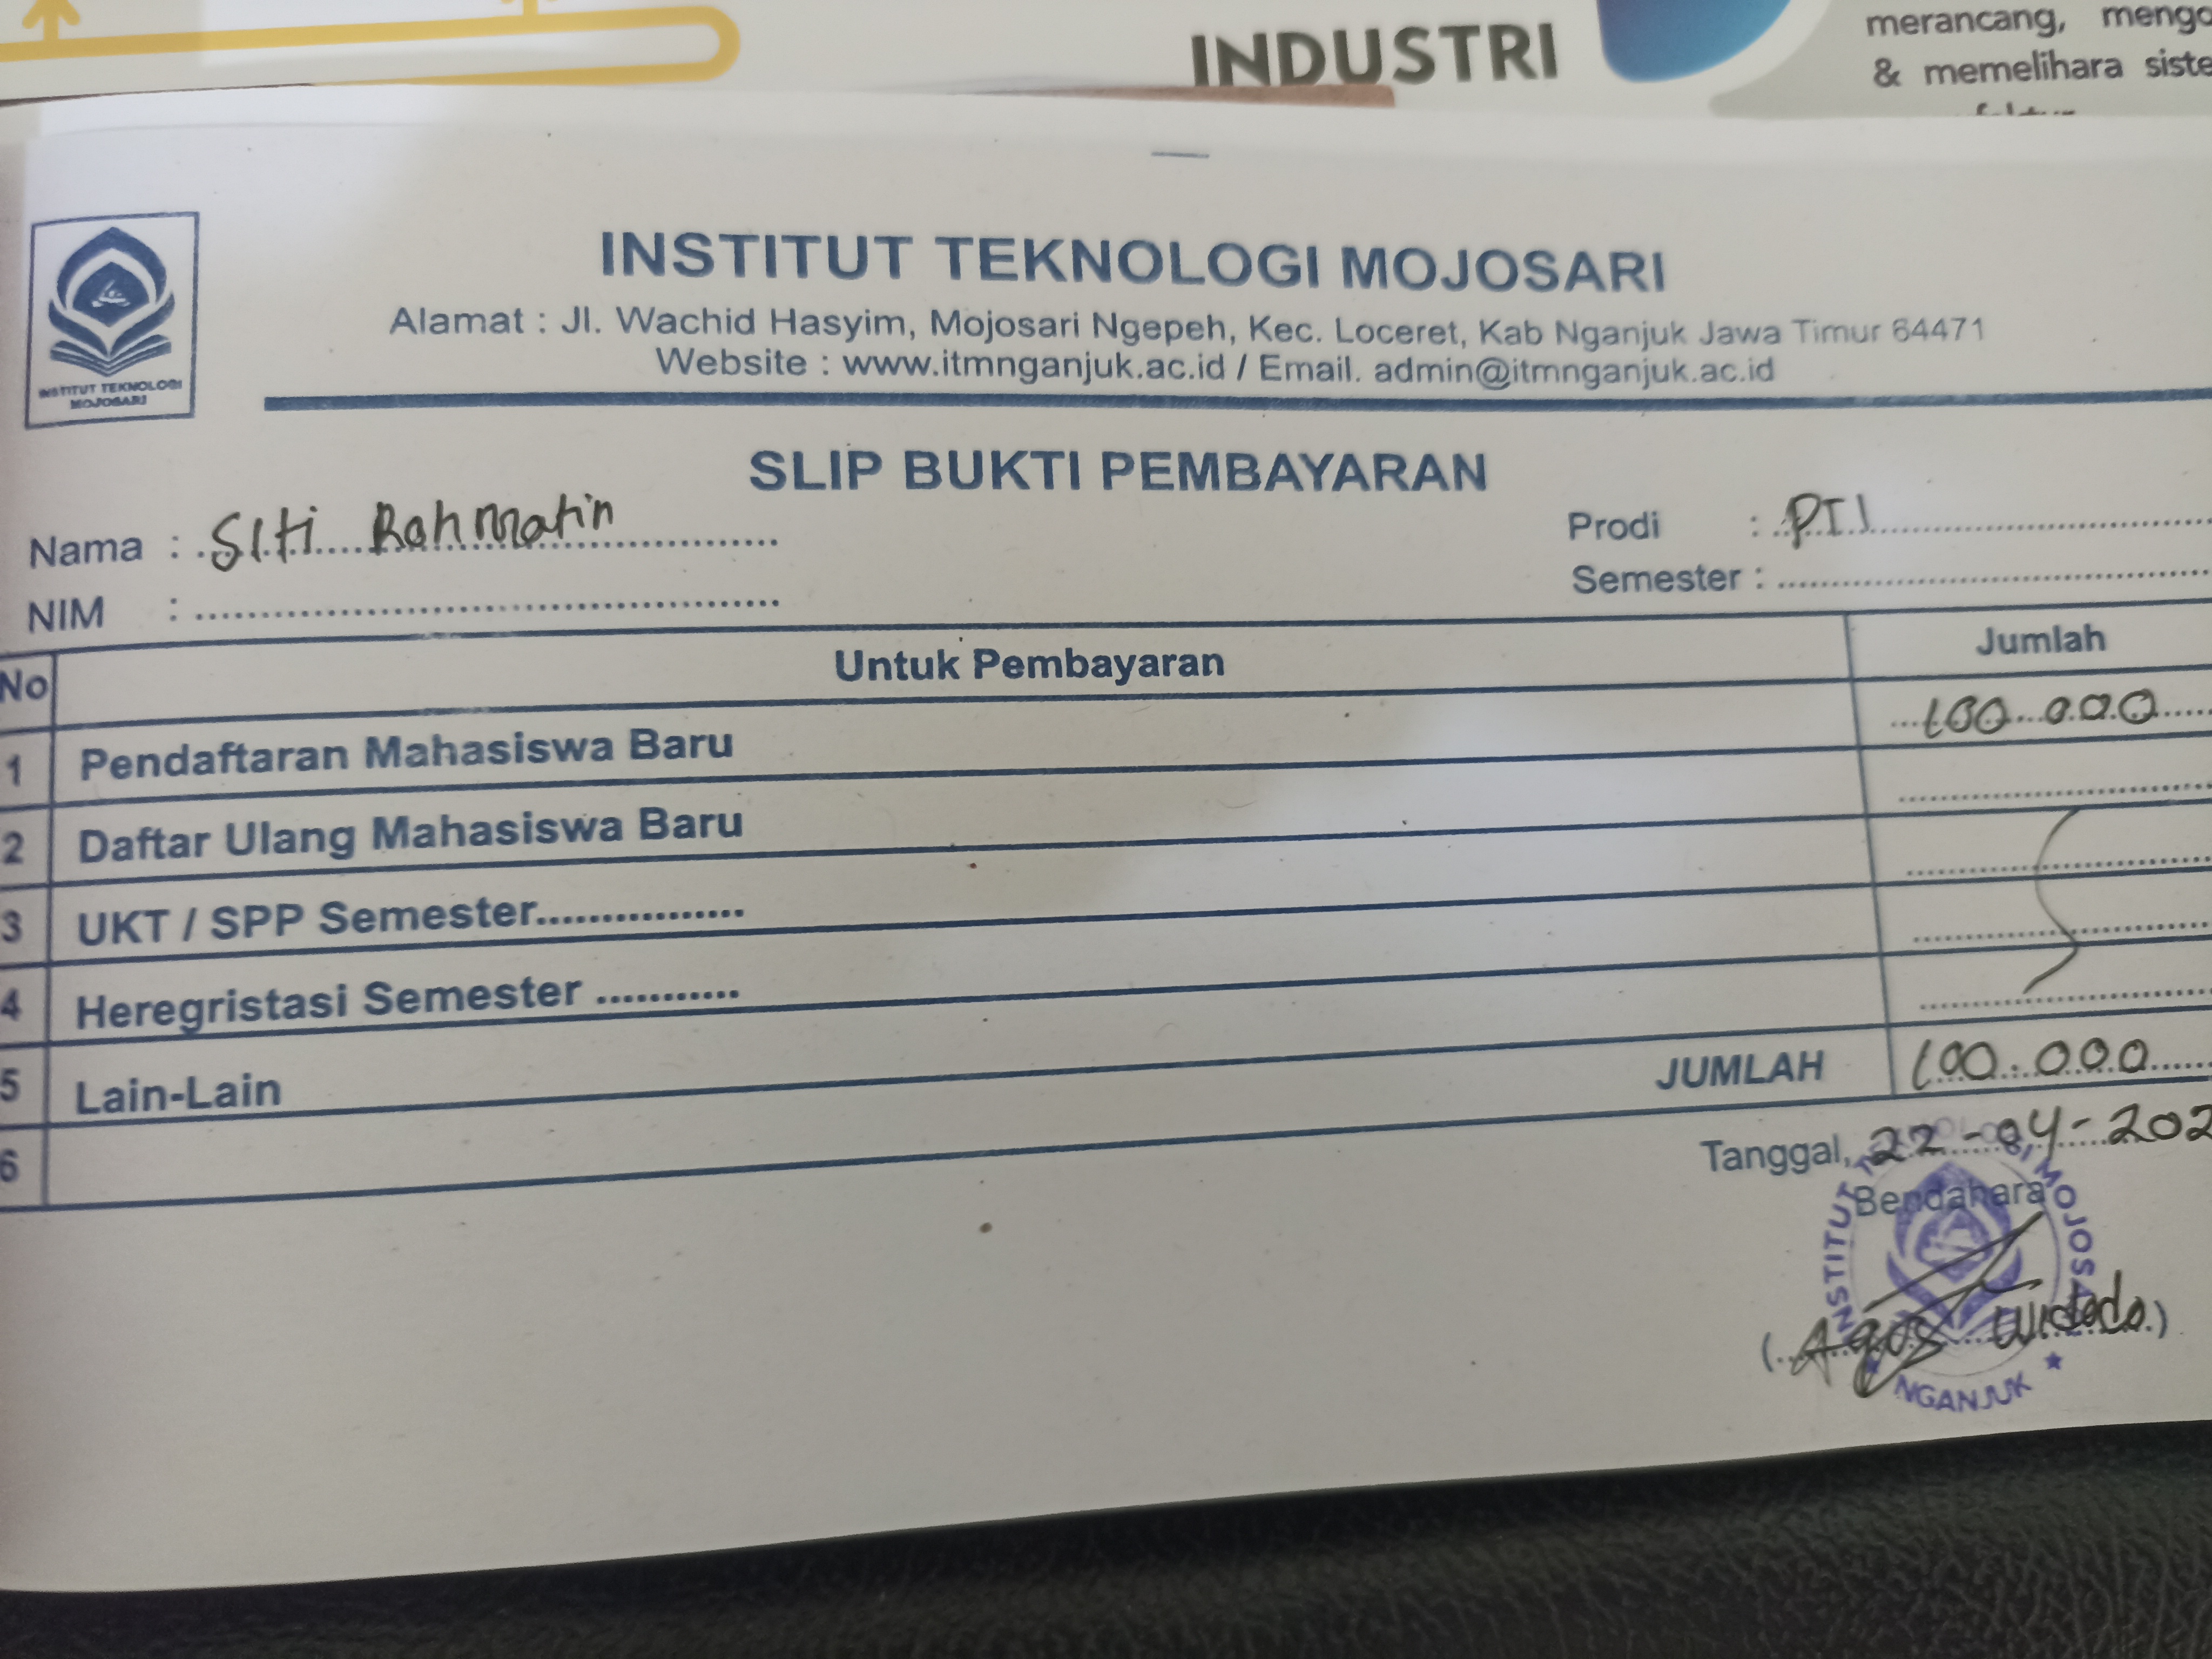 INDUSTRI
merancang, mengo
& memelihara siste
INSTITUT TEKNOLOGI
MOJOSARI
INSTITUT TEKNOLOGI MOJOSARI
Alamat : Jl. Wachid Hasyim, Mojosari Ngepeh, Kec. Loceret, Kab Nganjuk Jawa Timur 64471
Website : www.itmnganjuk.ac.id / Email. admin@itmnganjuk.ac.id
SLIP BUKTI PEMBAYARAN
Nama : Siti Rahmatin
Prodi : PTI
NIM :
Semester :
No Untuk Pembayaran Jumlah
1 Pendaftaran Mahasiswa Baru 100.000
2 Daftar Ulang Mahasiswa Baru
3 UKT / SPP Semester................
4 Heregristasi Semester ...........
5 Lain-Lain
6 JUMLAH 100.000
Tanggal, 22-04-202
Bendahara
(Agus Widodo)
INSTITUT TEKNOLOGI MOJOSARI
NGANJUK